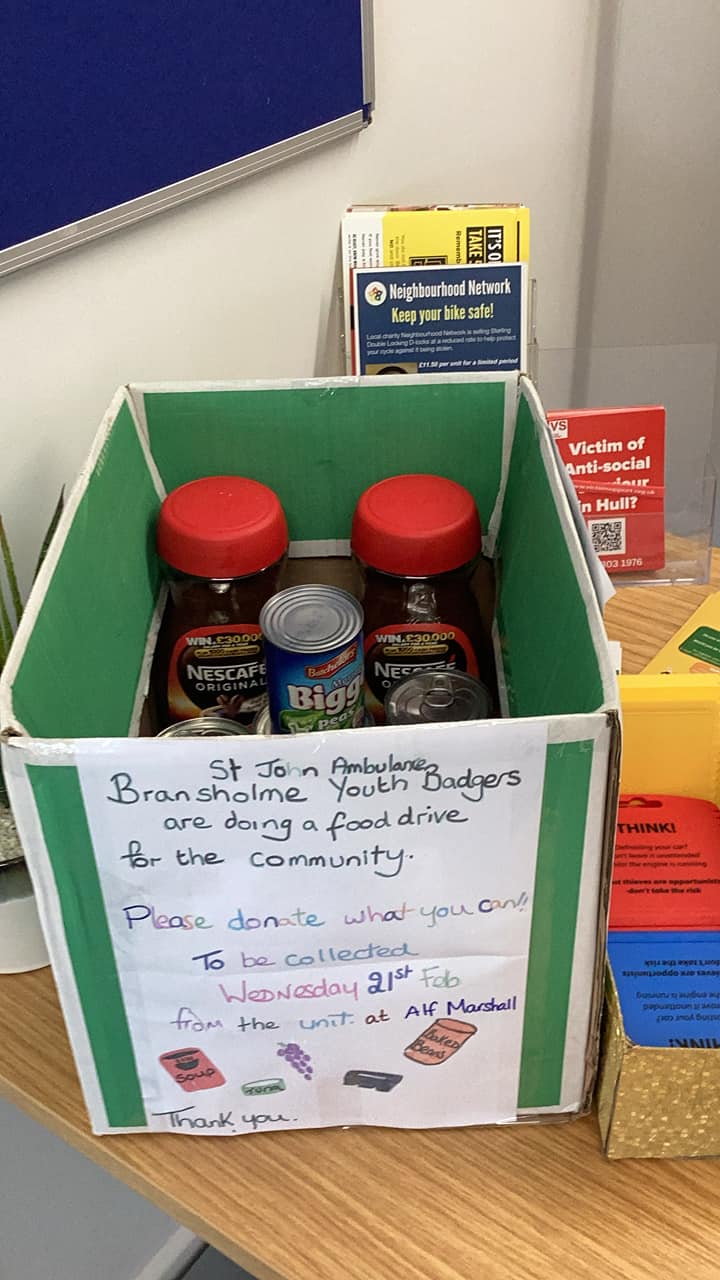 IT'S O
TAKE
Rememb
Neighbourhood Network
Keep your bike safe!
Local charity Neighbourhood Network is selling Sterling
Double Locking D-locks at a reduced rate to help protect
your cycle against it being stolen.
£11.50 per unit for a limited period
VS
Victim of
Anti-social
iour
n Hull?
303 1976
WIN £30,000
NESCAFÉ
ORIGINAL
Batchelors
Bigg
Peas
WIN £30,000
NESCAFÉ
St John Ambulance
Bransholme Youth Badgers
are doing a food drive
for the community.
Please donate what you can!!
To be collected
Wednesday 21st Feb
from the unit. at Alf Marshall
Soup
Tuna
Baked
Beans
Thank you.
THINK!
Defrosting your car?
on't leave it unattended
hile the engine is running
t thieves are opportunists
-don't take the risk
don't take the risk
ieves are opportunists
engine is running
ove it unattended
sting your car?
HINK!